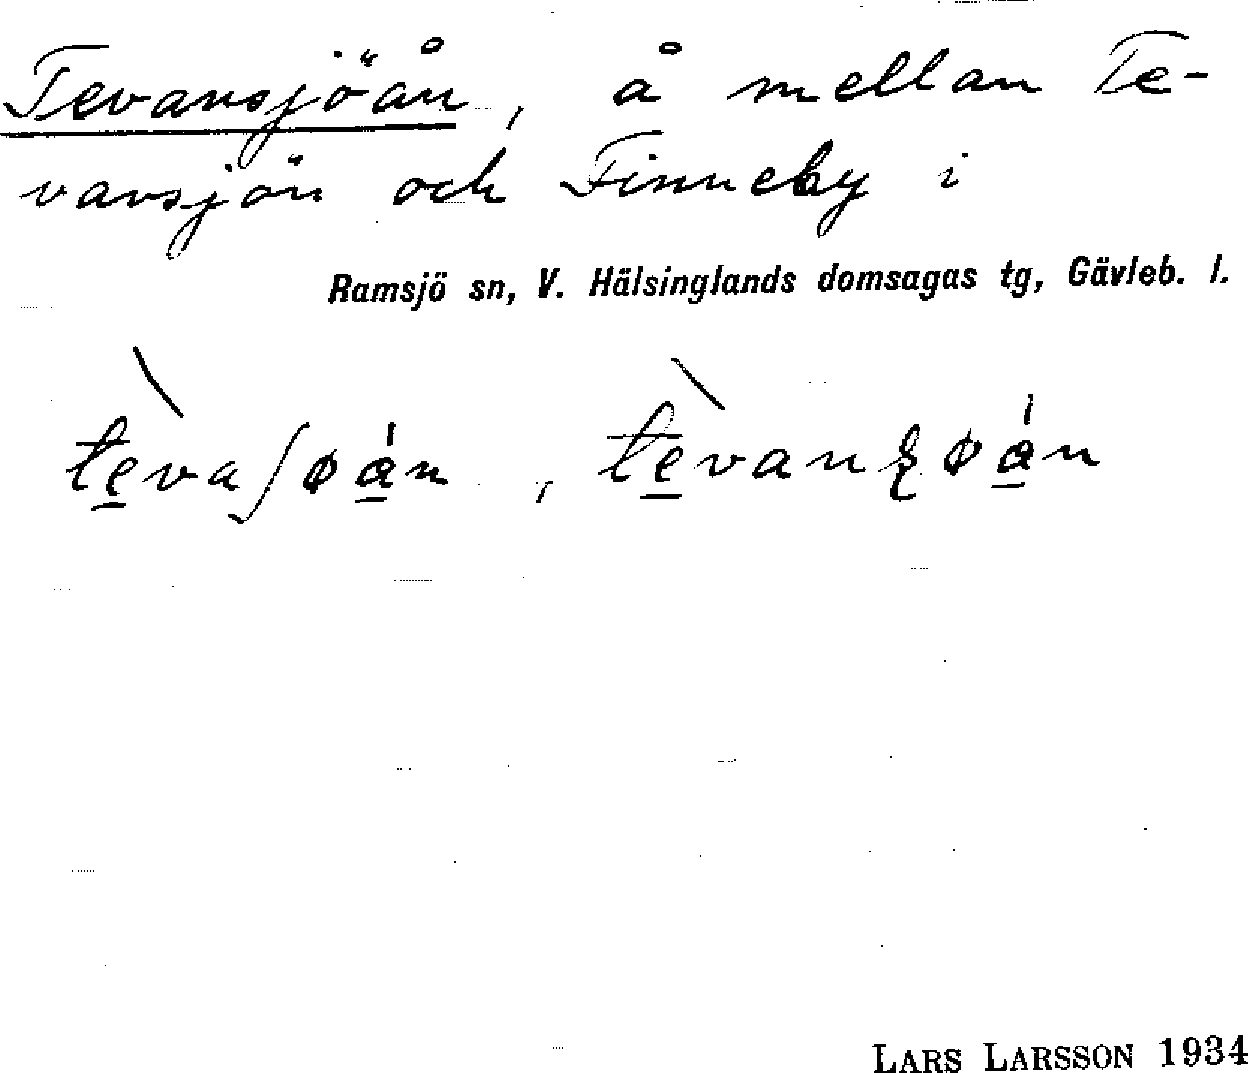 Tevansjöån, å mellan Te-
vansjön och Finneby i
Ramsjö sn, V. Hälsinglands domsagas tg, Gävleb. l.
LARS LARSSON 1934